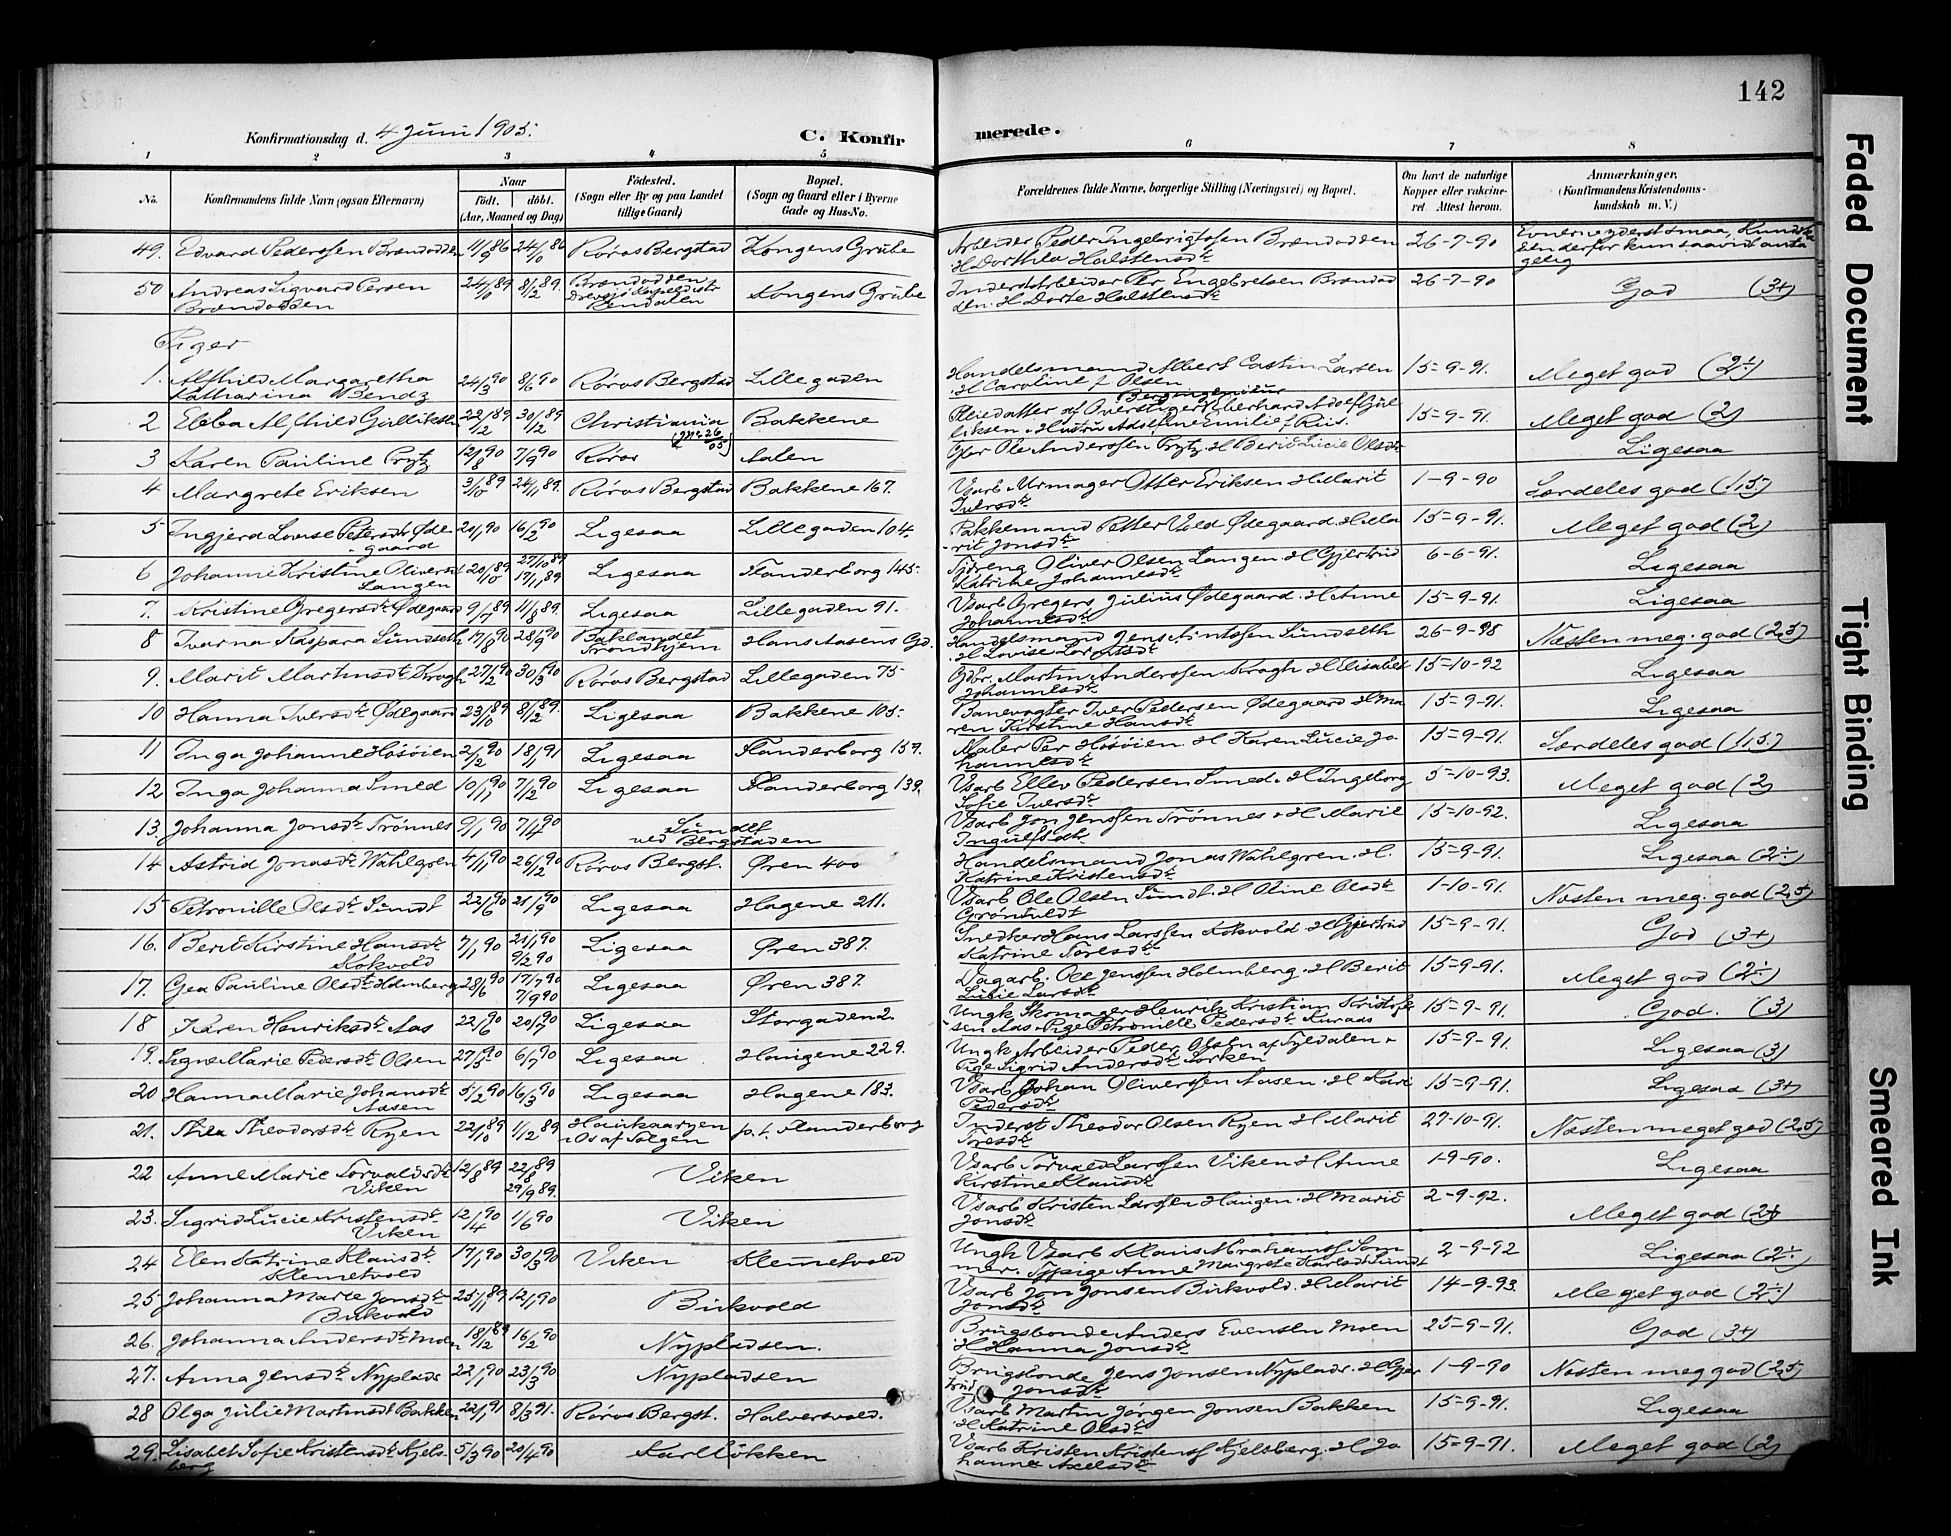 142
Konfirmationsdag d. 4 Juni 1905.
C. Konfirmerede.
1 2 3 4 5 6 7 8
No. Konfirmandens fulde Navn (ogsaa Efternavn)
Naar født. døbt. (Aar, Maaned og Dag)
Fødested. (Sogn eller By og paa Landet tillige Gaard)
Bopæl. (Sogn og Gaard eller i Byerne Gade og Hus-No.
Forældrenes fulde Navne, borgerlige Stilling (Næringsvei) og Bopæl.
Om havt de naturlige Kopper eller vakcineret. Attest herom.
Anmærkninger. (Konfirmandens Kristendomskundskab m. V.)
49. Edvard Pederssen Brændodden 11/9 86 24/10 86 Røros Bergstad Kongens Grube Arbeider Peder Ingebrigtssen Brændodden H Dorthea Halstensdt. 26-7-90 Evnerne yderst smaa, Kundskaben derfor kun saavidt antagelig
50 Andreas Sigvard Persen Brændodden 24/10 89 8/12 89. Brændodden Drevsjø Kapeldistr Rendalen Kongens Grube Inderst Arbeider Per Engebretsen Brændodden. H Dorte Halstensdt. 26-7-90 God (3+)
Piger
1. Alfhild Margaretha Katharina Bendz 24/3 90 8/6 90 Røros Bergstad Lillegaden Handelsmand Albert Castin Larsen H Caroline f Olsen 15-9-91. Meget god (2÷)
2 Ebba Alfhild Gulliksen 22/2 89 30/12 89 Christiania (No 26/05) Bakkene Pleiedatter af Overstiger Bergingeniør Eberhard Adolf Gulliksen. Hustru Adolfine Emilie f Riis. 15-9-91. Meget god (2)
3 Karen Pauline Prytz 12/8 90 7/9 90 Røros Aalen Gbr Ole Anderssen Prytz. H Berit Lucie Olsdt. Ligesaa
4 Margrete Eriksen 3/10 89 24/11 89. Røros Bergstad Bakkene 167. Vsarb Urmager Otter Eriksen H Marit Iversdt. 1-9-90 Særdeles god (1,5)
5 Ingjerd Lovise Petersdt. Ødegaard 20/1 90 16/2 90 Ligesaa Lillegaden 104. Pakkemand Petter Vold Ødegaard. H Marit Jonsdt. 15-9-91. Meget god (2)
6 Johanne Kristine Oliversdt Langen 20/10 89 27/10 89 17/11 89 Ligesaa Flanderborg 145. Tjdreng Oliver Olsen Langen. H Gjertrud Katrine Johannesdt. 6-6-91. Ligesaa
7. Kristine Gregersdt. Ødegaard 9/7 89 11/8 89. Ligesaa Lillegaden 91. Vsarb Gregers Julius Ødegaard. H Anne Johannesdt. 15-9-91. Ligesaa
8 Ivarna Kaspara Sundseth 17/8 90 28/9 90 Baklandet Trondhjem Hans Aasens Gd. Handelsmand Jens Arntssen Sundseth H Lovise Lorntsdt. 26-9-98 Næsten meg. god (2,5)
9. Marit Martinsdt. Krogh 27/2 90 30/3 90 Røros Bergstad Lillegaden 75 Gbr. Martin Anderssen Krogh H Elisabet Johannesdt. 15-10-92 Ligesaa
10 Hanna Iversdt. Ødegaard 23/10 89 8/12 89. Ligesaa Bakkene 105. Banevogter Iver Pedersen Ødegaard H Maren Kirstine Hansdt. 15-9-91. Ligesaa
11 Inga Johanne Høsøien 2/2 90 18/1 91 Ligesaa Flanderborg 159. Maler Per Høsøien. H Karen Lucie Johannesdt. 15-9-91. Særdeles god (1,5.)
12 Inga Johanna Smed 10/11 90 7/2 90 Ligesaa Flanderborg 139. Vsarb Ellev Pedersen Smed. H Ingeborg Sofie Iversdt. 5-10-93. Meget god (2)
13. Johanna Jonsdt. Trønnes 9/1 90 7/4 90 Sundet ved Bergstaden Vsarb Jon Jenssen Trønnes H Marie Ingulfsdt. 15-10-92. Ligesaa
14 Astrid Jonasdt. Wahlgren 4/11 90 26/12 90 Røros Bergst. Øren 400 Handelsmand Jonas Wahlgren. H. Katrine Kristensdt. 15-9-91. Ligesaa (2÷)
15 Petronille Olsdt. Sundt 22/6 90 21/9 90 Ligesaa Hagene 211. Vsarb Ole Olsen Sundt. H Oline Olsdt. Grøntvedt 1-10-91. Næsten meg. god (2,5)
16. Berit Kirstine Hansdt. Kokvold 7/1 90 21/1 90 9/2 90 Ligesaa Øren 387. Snedker Hans Larssen Kokvold H Gjertrud Katrine Toresdt. 15-9-91. God (3+)
17. Gea Pauline Olsdt. Holmberg 28/6 90 17/7 90 7/9 90 Ligesaa Øren 387. Dagarb. Ole Jenssen Holmberg. H Berit Lucie Larsdt. 15-9-91. Meget god (2÷)
18 Karen Henriksdt. Aas 22/6 90 20/7 90 Ligesaa Storgaden 2. Ungk Skomager Henrik Kristian Kristofersen Aas. Pige Petronille Pedersdt. Kuraas 15-9-91. God. (3)
19. Signe Marie Pedersdt. Olsen 27/5 90 6/7 90 Ligesaa Haugene 229. Ungk Arbeider Peder Olsen af Tydalen + Pige Sigrid Andersdt. Sørken 15-9-91. Ligesaa (3)
20 Hanna Marie Johansdt. Aasen 5/2 90 16/3 90 Ligesaa Hagene 183. Vsarb Johan Oliverssen Aasen. H Kari Pedersdt. 15-9-91. Ligesaa (3+)
21. Thea Theodorsdt. Ryen 22/10 89 1/12 89 Haukaaryen i Os af Tolgen p.t. Flanderborg Inderst Theodor Olsen Ryen H Marit Toresdt. 27-10-91. Næsten meget god (2,5)
22 Anne Marie Torvaldsdt. Viken 12/8 89 22/8 89 29/9 89. Viken Vsarb Torvald Larssen Viken H Anne Kirstine Klausdt. 1-9-90. Ligesaa
23. Sigrid Lucie Kristensdt. Viken 12/4 90 1/6 90 Viken Vsarb Kristen Larssen Haugen. H Marit Jonsdt. 2-9-92. Meget god (2+)
24 Elen Katrine Klausdt. Klemetvold 17/1 90 30/3 90 Viken Klemetvold Ungk Vsarb Klaus Abrahams. Sommer. Tjpige Anne Margrete Karlsdt. Sundt 2-9-92 Ligesaa (2÷)
25 Johanna Marie Jonsdt. Birkvold 25/11 89 12/1 90 Birkvold Vsarb Jon Jonsen Birkvold. H Marit Jonsdt. 14-9-93. Meget god (2÷)
26. Johanna Andersdt. Moen 18/12 89 16/2 90 Nypladsen. Brugsbonde Anders Evensen Moen H Hanna Jonsdt. 25-9-91. God (3+)
27. Anna Jensdt. Nyplads 22/1 90 23/3 90 Nypladsen Brugsbonde Jens Jonsen Nyplads. H Gjertrud Jonsdt. 1-9-90 Næsten meg god (2,5)
28 Olga Julie Martinsdt Bakken 22/1 91 8/3 91. Røros Bergst. Halversvold. Vsarb Martin Jørgen Jonsen Bakken H Katrine Olsdt. 15-9-91. Ligesaa
29. Lisabet Sofie Kristensdt. Kjelsberg 5/3 90 20/4 90 Karlløkken Vsarb Kristen Kristens. Kjelsberg. H Johanne Axelsdt. 15-9-91. Meget god (2)
Faded Document
Tight Binding
Smeared Ink